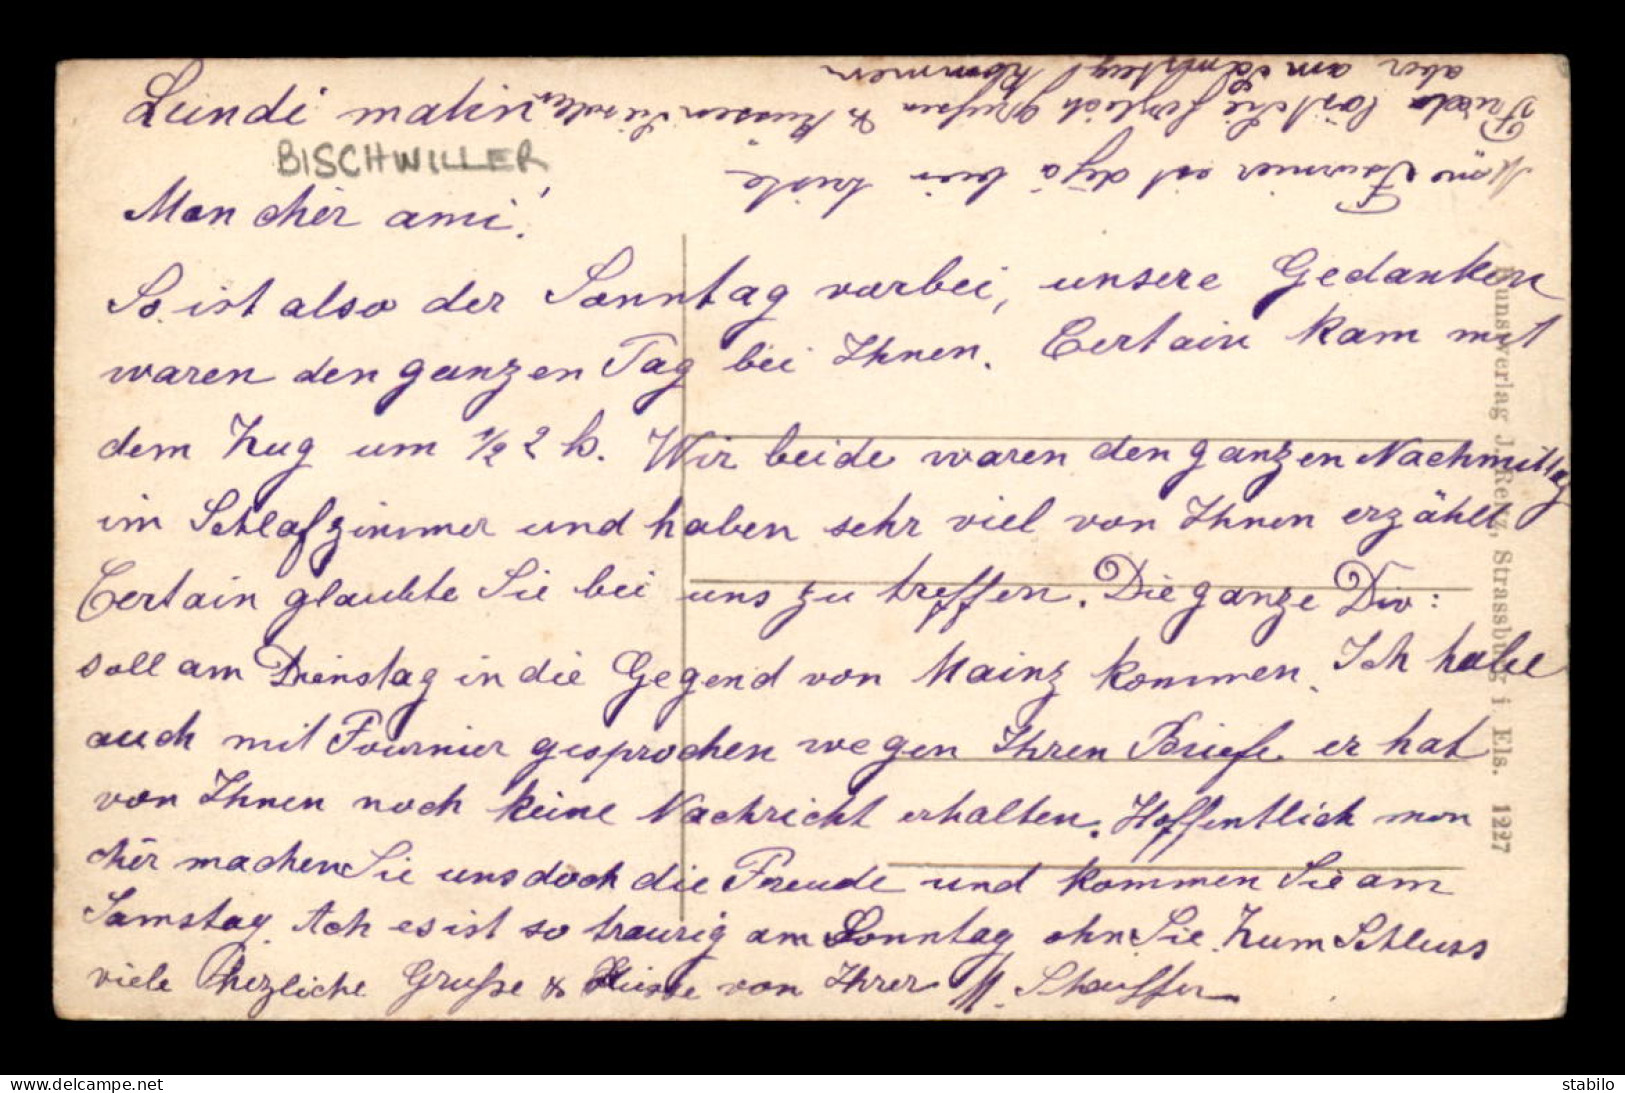 Lundi matin
BISCHWILLER
Mon chèr ami!
So ist also der Sonntag vorbei, unsere Gedanken
waren den ganzen Tag bei Ihnen. Certain kam mit
dem Zug um 1/2 2 h. Wir beide waren den ganzen Nachmittag
im Schlafzimmer und haben sehr viel von Ihnen erzählt
Certain glaubte Sie bei uns zu treffen. Die ganze Div:
soll am Dienstag in die Gegend von Mainz kommen. Ich habe
auch mit Fournier gesprochen wegen Ihren Briefe er hat
von Ihnen noch keine Nachricht erhalten. Hoffentlich mon
chèr machen Sie uns doch die Freude und kommen Sie am
Samstag. Ach es ist so traurig am Sonntag ohn Sie. Zum Schluss
viele herzliche Grüße & Küsse von Ihrer M. Schauffer
Fournier est dejà bien triste
Frieda läst Sie herzlich grüßen & küssen Sie sollen
aber am Samstag kommen
Kunstverlag J. Retz, Strassburg i. Els. 1227
delcampe.net
stabilo